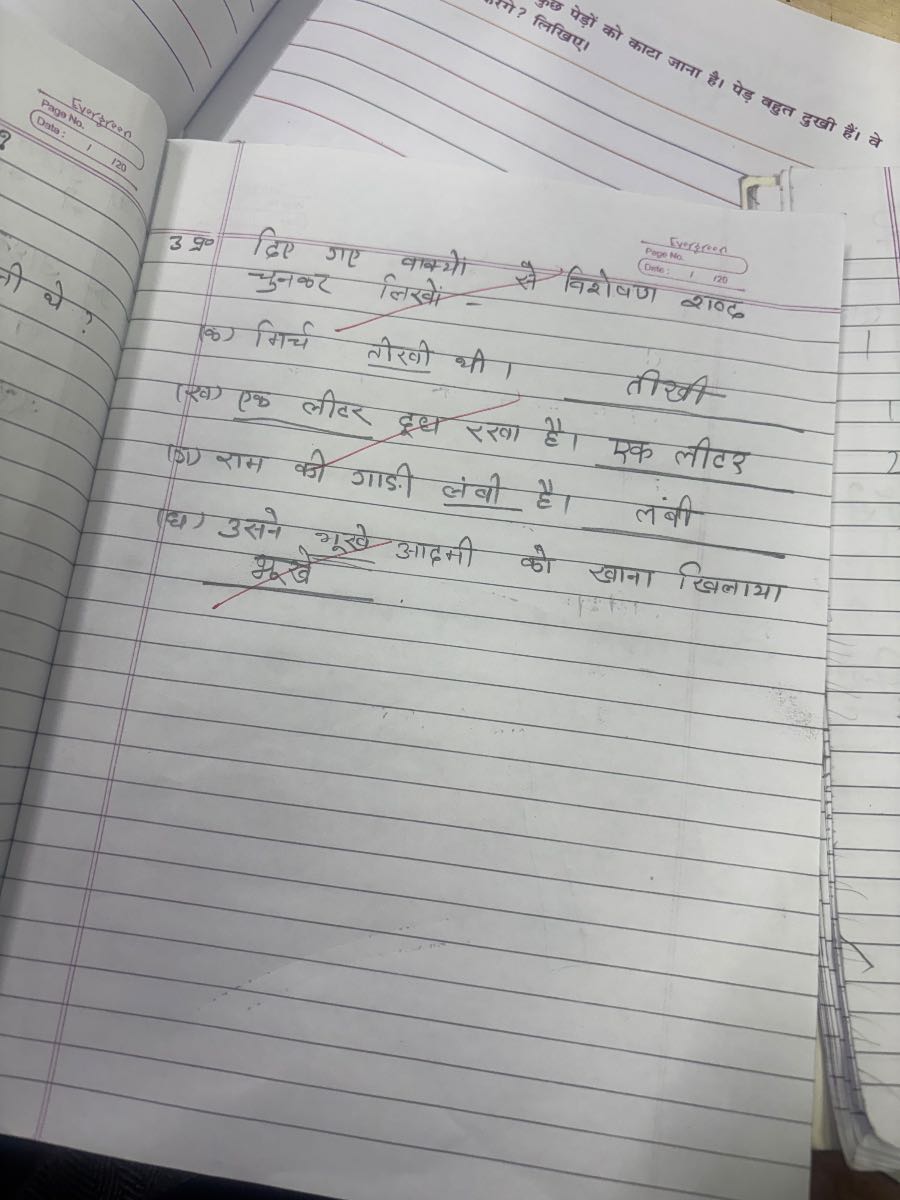 कुछ पेड़ों को काटा जाना है। पेड़ बहुत दुखी हैं। वे
लिखिए।
Evergreen
Page No.
Date: / /20
नी थे ?
Evergreen
Page No.
Date: / /20
3 प्र० दिए गए वाक्यों से विशेषण शब्द
चुनकर लिखों –
(क) मिर्च तीखी थी । तीखी
(ख) एक लीटर दूध रखा है। एक लीटर
(ग) राम की गाड़ी लंबी है। लंबी
(घ) उसने भूखे आदमी को खाना खिलाया
भूखे